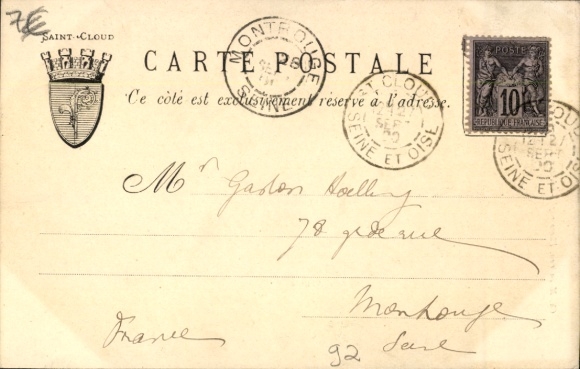 7€
SAINT-CLOUD
CARTE POSTALE
Ce côté est exclusivement réservé à l'adresse.
MONTROUGE
SEINE
ST CLOUD
SEPT
SEINE ET OISE
POSTE
10
REPUBLIQUE FRANÇAISE
CLOUD
SEPT
SEINE ET OISE
Mr Gaston
78 gde rue
Montrouge
France
92 Seine